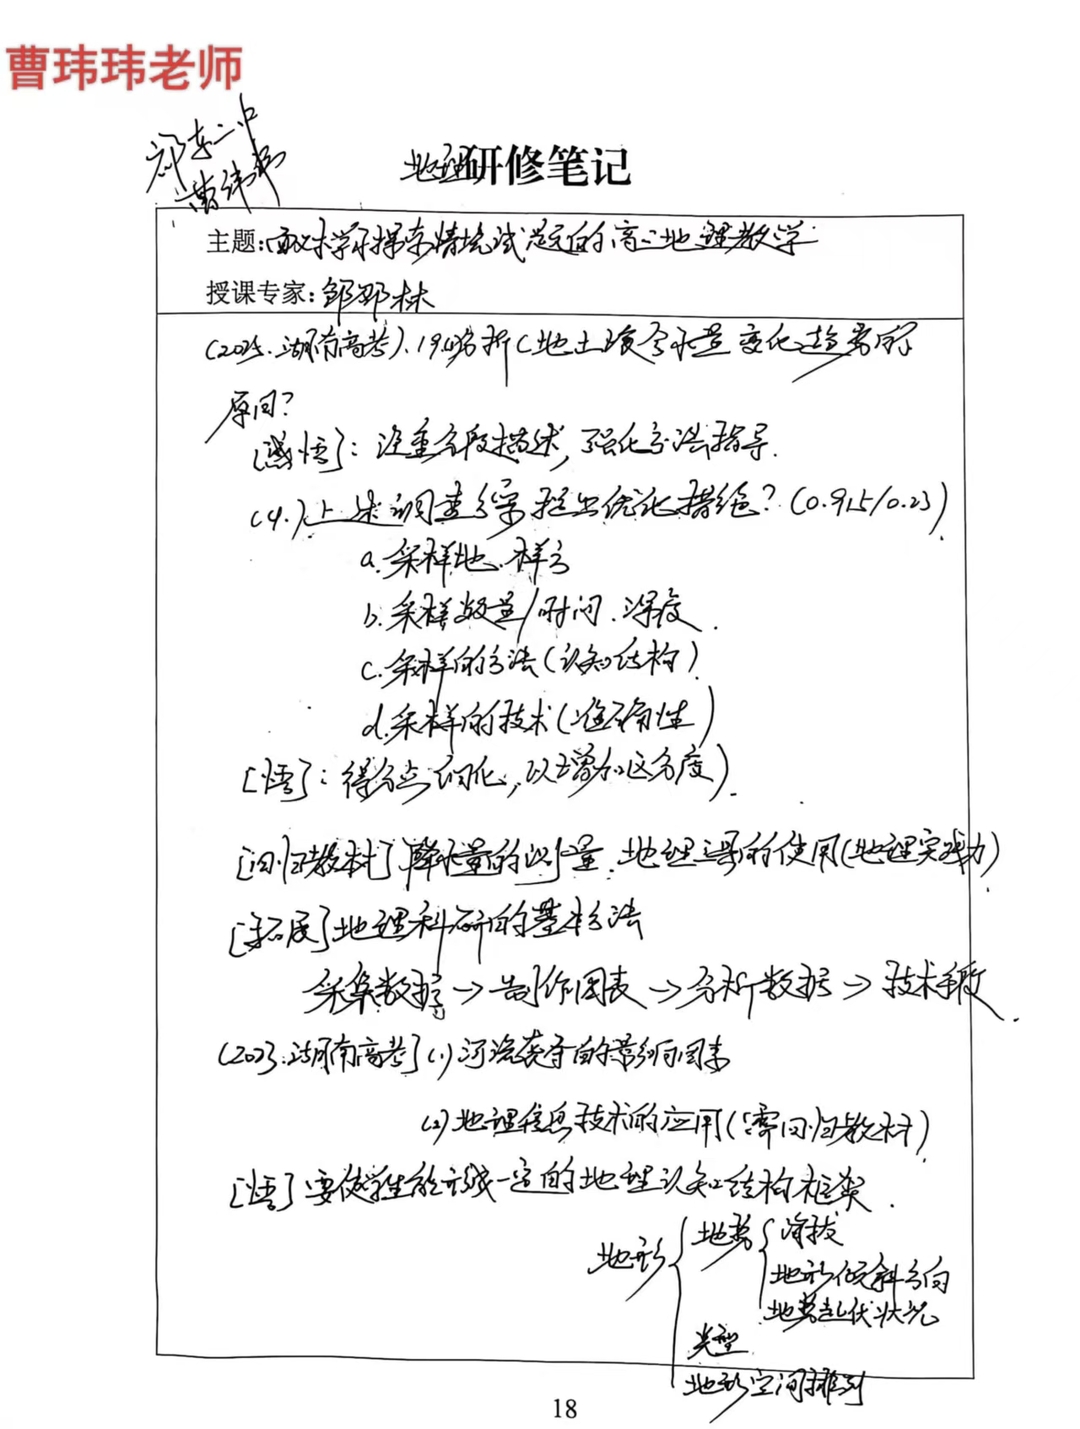 曹玮玮老师
祁东二中
曹玮玮
地理研修笔记
主题:面对学术探索情境试题的高三地理教学
授课专家:邹邵林
(2025.湖南高考).19.(3)分析C地土壤含水量变化趋势的
原因?
[感悟]:注重分段描述,强化方法指导.
(4.)上述调查方案提出优化措施?(0.915/0.23)
a.采样地.样方
b.采样数量/时间.深度.
c.采样的方法(认知结构)
d.采样的技术(准确性)
[悟]:得分点细化,以增加区分度).
[回归教材]降水量的测量.地理工具的使用(地理实践力)
[拓展]地理科研的基本方法
采集数据→制作图表→分析数据→技术手段.
(2023.湖南高考](1)河流袭夺的影响因素
(2)地理信息技术的应用(需回归教材)
[悟]要使学生能形成一定的地理认知结构框架.
地形 地势 海拔
地形倾斜方向
地势起伏状况
类型
地形空间排列
18